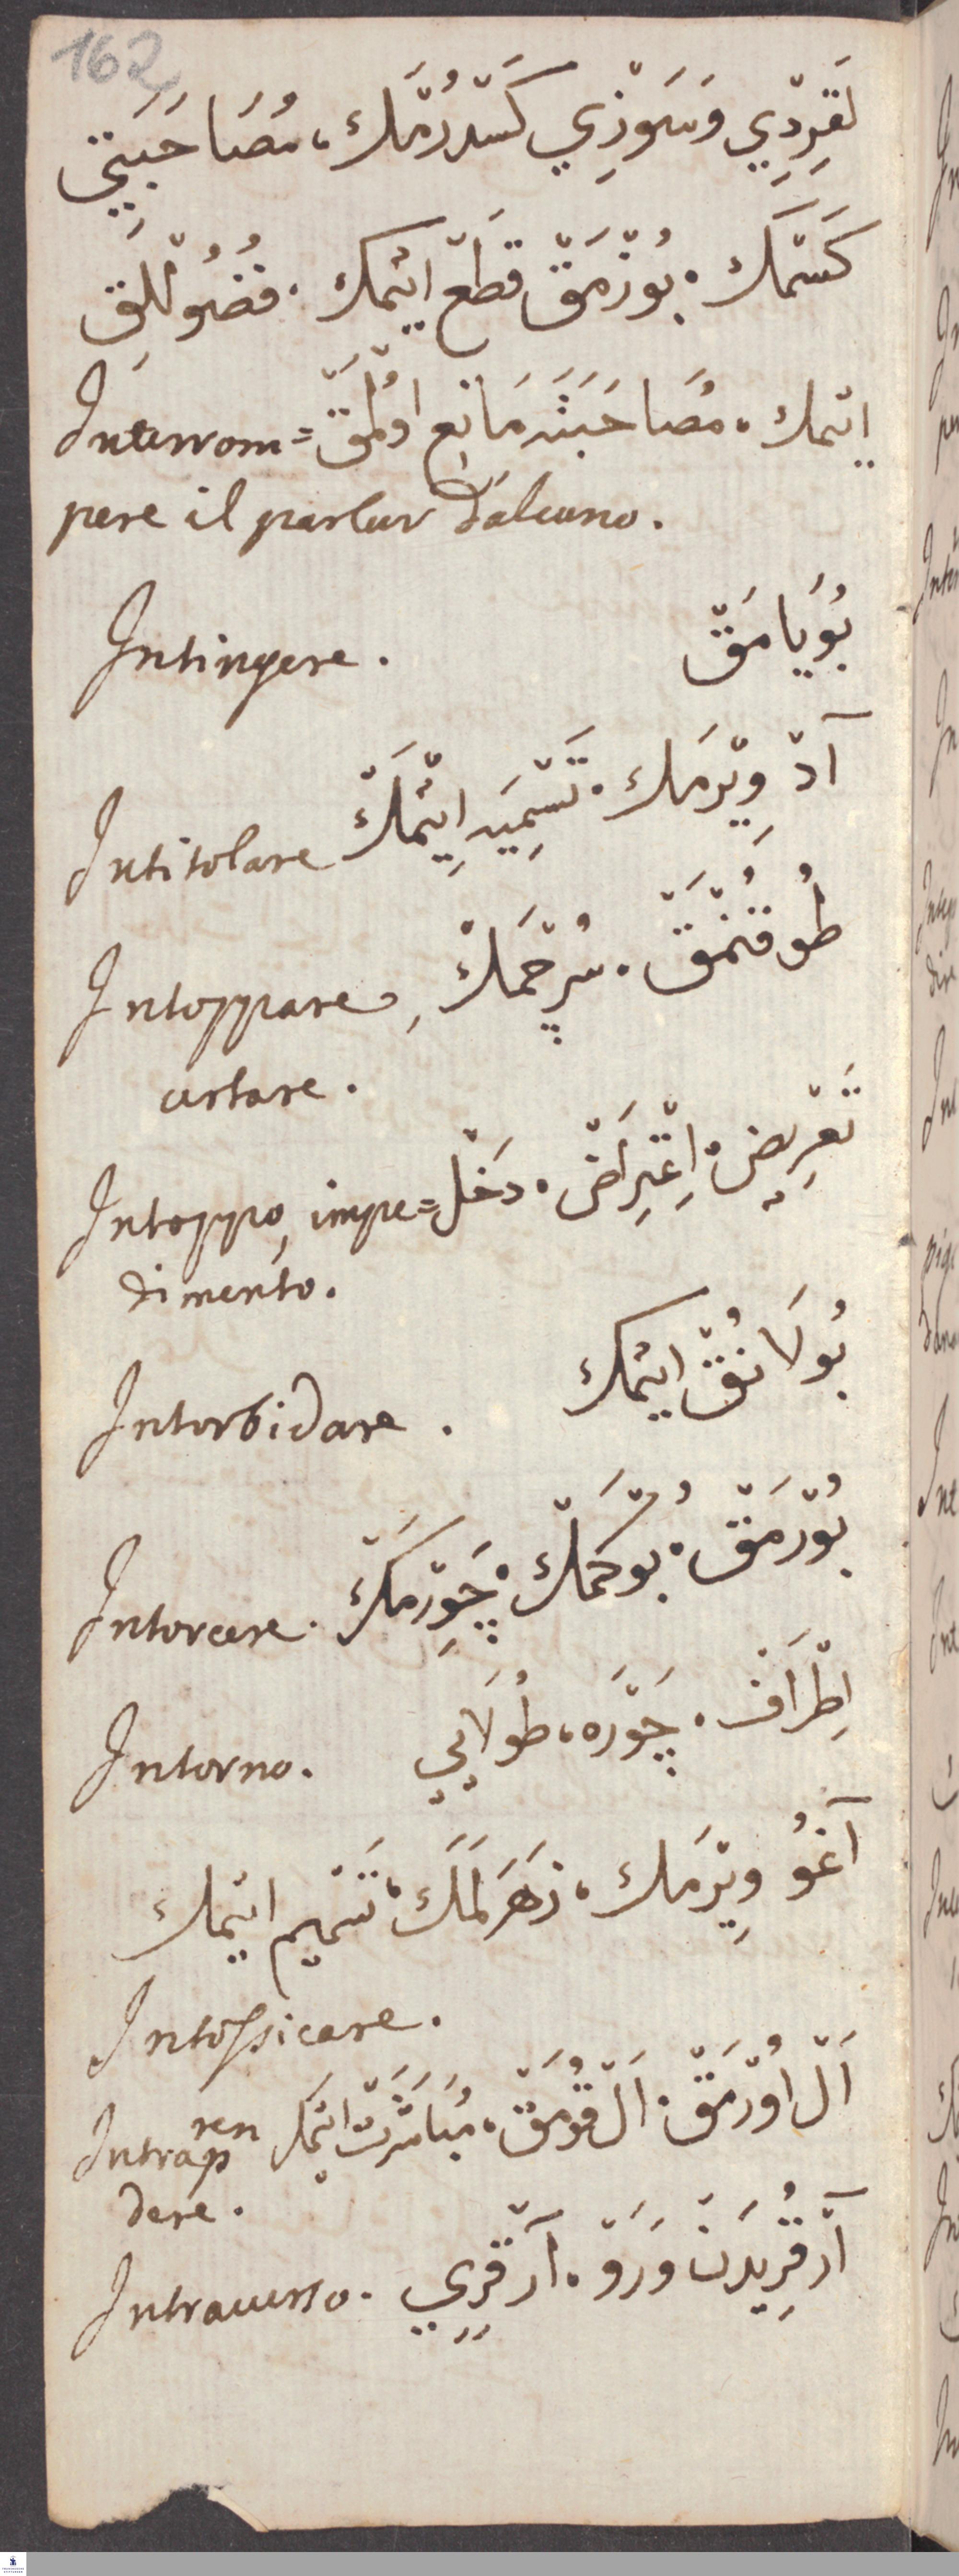 162
لَقِرْدِيِ وَسَوْزِي كَسْدُرْمَك، مُصَاحَبَتِي
كَسْمَك · بُوزْمَقْ قَطْع ايتمك · فُضُوْللِق
ايتمك، مُصَاحَبَتَه مَانِع اوُلْمَقْ Interrom=
pere il parlar d'alcuno.
Intingere. بُوَيَامَقْ
Intitolare آدْ وِيْرمَك · تَسْمِيَه اِيتْمَكْ
Intoppare, طُوقُنْمَقْ · سُرْچمَكْ
urtare.
Intoppo, impe= تَعْرِيض · اِعْتِرَاضْ · دَخْل
dimento.
Intorbidare. بُولَانُقْ ايتمك
Intorcere. بُوْرْمَقْ · بُوكْمَكْ · چَوِرْمَكْ
Intorno. اِطْرَافْ · چَوْرَه، طُولَايِي
آغُو وِيْرمَك، زَهَرلَمَكْ، تَسْمِيم ايتمك
Intossicare.
Intrapren اَلْ اوُرْمَقْ · اَلْ قُومَقْ، مُبَاشَرَتْ ايتمك
dere.
Intrauerso. آرْقُرِيدَنْ وَرَوْ · آرْقِرِي